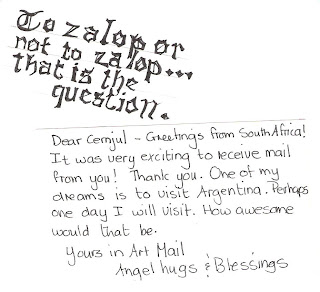 To zalop or
not to zalop...
that is the
question.
Dear Cernjul - Greetings from South Africa!
It was very exciting to receive mail
from you! Thank you. One of my
dreams is to visit Argentina. Perhaps
one day I will visit. How awesome
would that be.
Yours in Art Mail
Angel hugs & Blessings